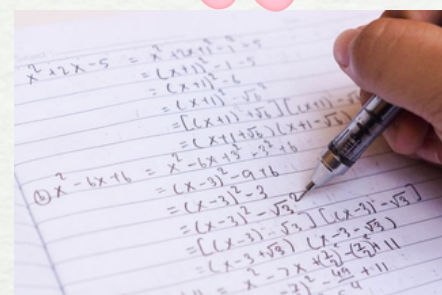 x² + 2x - 5 = x² + 2x + 1² - 1² - 5
= (x+1)² - 1 - 5
= (x+1)² - 6
= (x+1)² - √6²
= [(x+1) + √6] [(x+1) - √6]
= (x+1+√6) (x+1-√6)
b) x² - 6x + 6 = x² - 6x + 3² - 3² + 6
= (x-3)² - 9 + 6
= (x-3)² - 3
= (x-3)² - √3²
= [(x-3) - √3] [(x-3) - √3]
= (x-3+√3) (x-3-√3)
= x² - 7x + (7/2)² - (7/2)² + 11
)² - 49/4 + 11